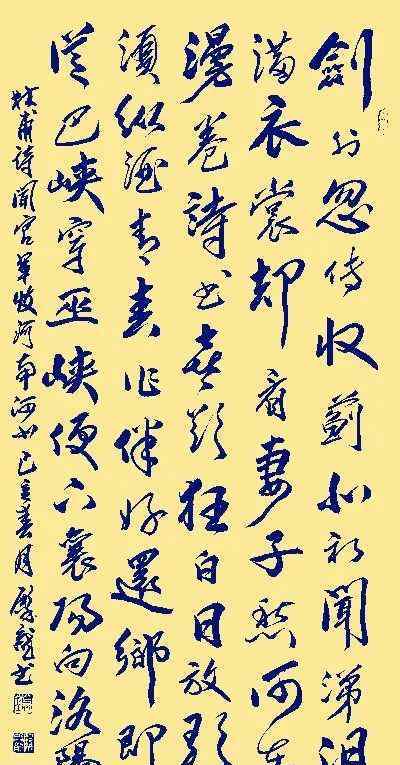 劍外忽傳收薊北初聞涕泪
滿衣裳却看妻子愁何在
漫卷詩書喜欲狂白日放歌
須縱酒青春作伴好還鄉即
從巴峽穿巫峽便下襄陽向洛陽
杜甫詩聞官軍收河南河北己亥春月書